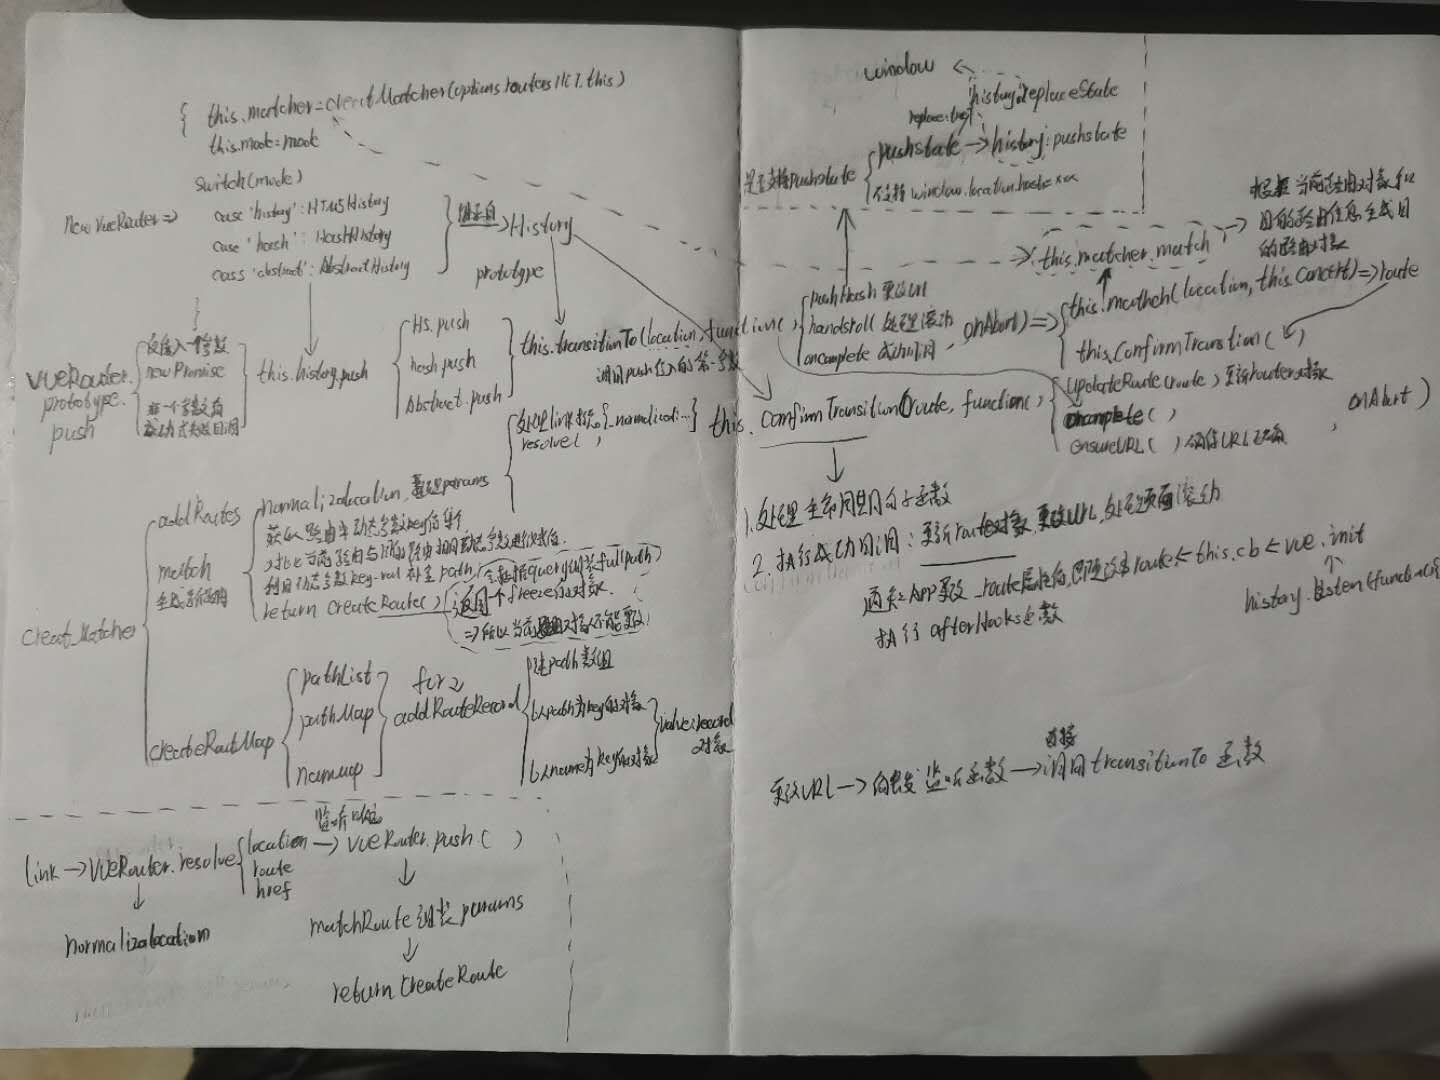 this.matcher=creatMatcher(options.routers||[],this)
this.mode=mode
switch(mode)
new VueRouter=>
case 'history': HTML5History
case 'hash': HashHistory
cass 'abstract': AbstractHistory
继承自
History
prototype
VUERouter.
prototype.
push
没传入一个参数
new Promise
this.history.push
HS.push
hash.push
Abstract.push
this.transitionTo(location, function(
调用push传入的第一个参数
pushHash 更改URL
handscroll 处理滚动
oncomplete 成功回调
, onAbort)=>
this.mathch(location, this.current)=>route
this.ConfirmTransition( )
window
history.replaceState
replace:true
是否支持pushstate
pushstate → history:pushstate
不支持 window.location.hash=xx
this.matcher.match
根据当前路由对象和
目的路由信息生成目
的路由对象
this.confirmTransition(route, function(
updateRoute(route) 更新router对象
oncomplete( )
ensureURL( ) 确保URL正确
, onAbort)
1.处理生命周期钩子函数
2.执行成功回调: 更新route对象,更改URL,处理页面滚动
通知App更改_route属性值,
route<= this.cb <= vue.init
history.listen(function(
执行afterHooks函数
更改URL → 触发监听函数 → 直接调用transitionTo函数
creat_Matcher
addRoutes
match
creatRoutMap
normalizalocation,
处理params
resolve(
获取路由中动态参数key值集合
对比当前路由与
利用动态参数key-val 补全path
会根据query组装fullpath
return createRoute( )
返回一个freeze的对象
=>所以当前路由对象不能更改
pathList
pathMap
namemap
for
addRouteRecord
path数组
以path为key的对象
以name为key的对象
value:record
对象
link → VueRouter.resolve
location
route
href
监听
→ VueRouter.push( )
normalizalocation
matchRoute 组装 params
return createRoute